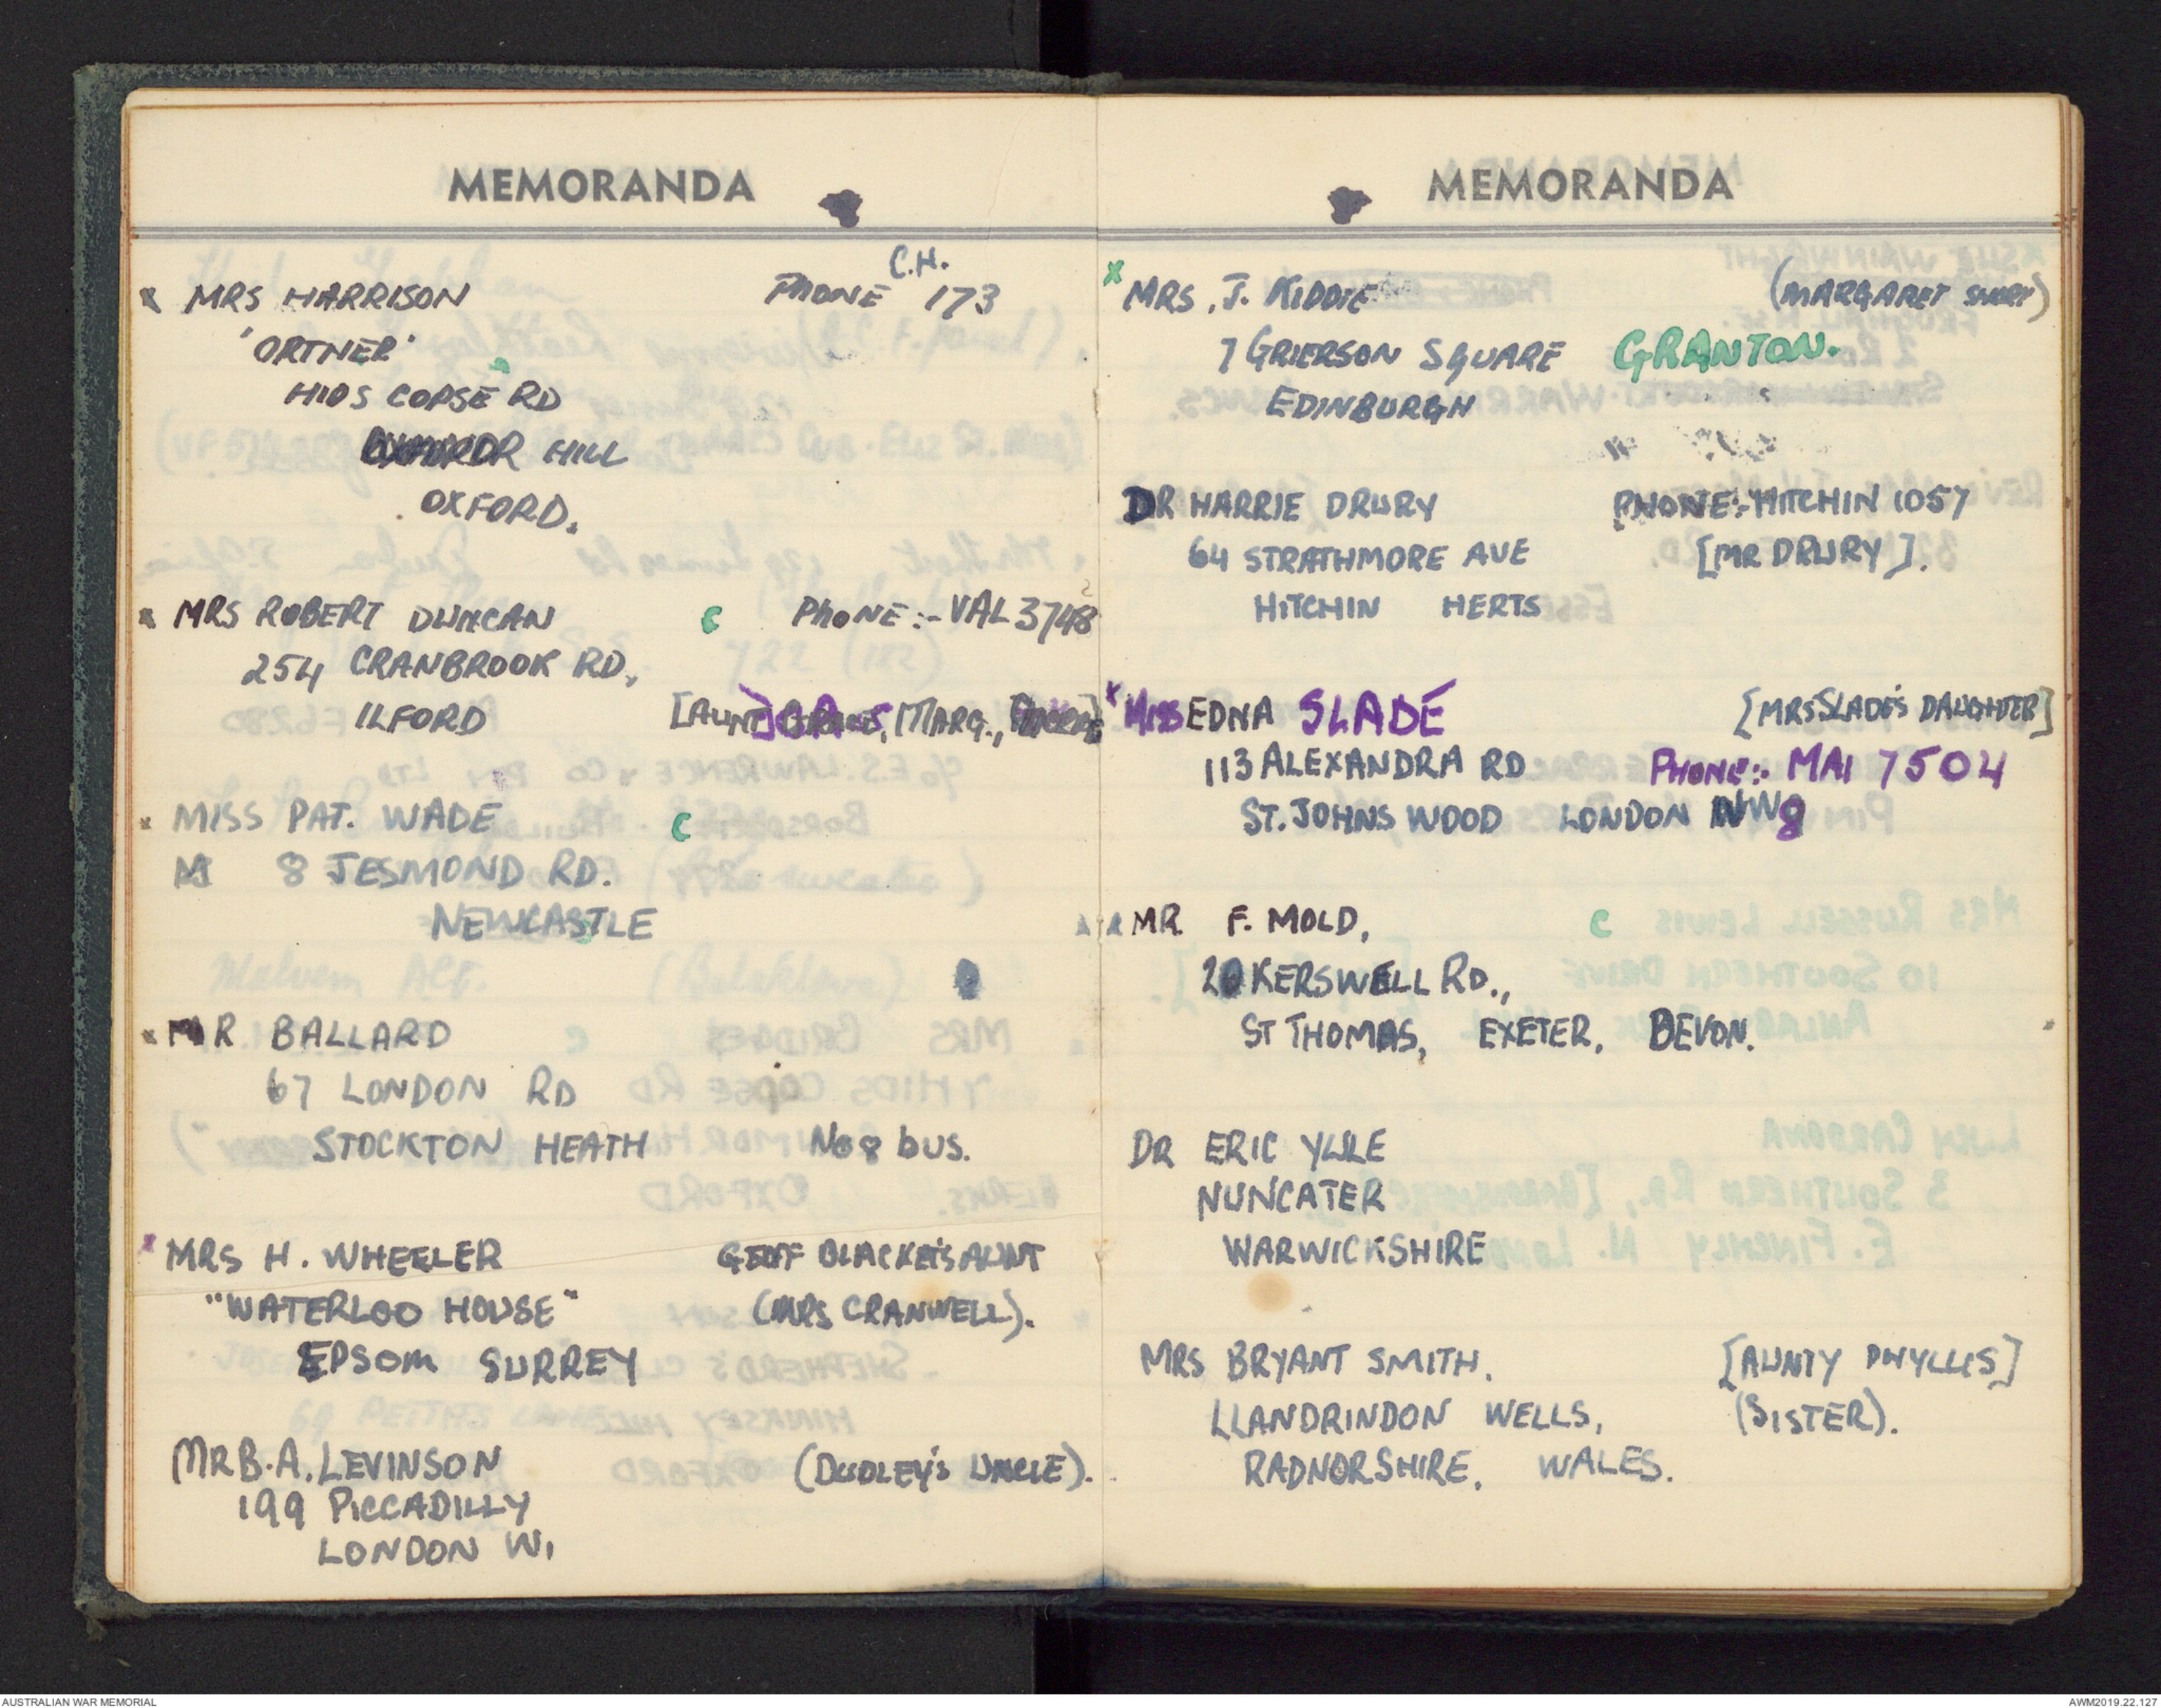 MEMORANDA
x MRS HARRISON PHONE C.H. 173
'ORTNER'
HIDS COPSE RD
HILL
OXFORD.
x MRS ROBERT DUNCAN C PHONE:- VAL 3748
254 CRANBROOK RD,
ILFORD [AUNT MARG.,
x MISS PAT. WADE C
8 JESMOND RD.
NEWCASTLE
x MR BALLARD
67 LONDON RD
STOCKTON HEATH No 8 bus.
x MRS H. WHEELER GEOFF BLACKET'S AUNT
"WATERLOO HOUSE" (MRS CRANWELL).
EPSOM SURREY
MR B.A. LEVINSON (DUDLEY'S UNCLE).
199 PICCADILLY
LONDON W1
MEMORANDA
x MRS. J. KIDDIE (MARGARET
7 GRIERSON SQUARE GRANTON.
EDINBURGH
DR HARRIE DRURY PHONE:- HITCHIN 1057
64 STRATHMORE AVE [MR DRURY].
HITCHIN HERTS
x MISS EDNA SLADE [MRS SLADE'S DAUGHTER]
113 ALEXANDRA RD PHONE:- MAI 7504
ST. JOHNS WOOD LONDON NW8
x MR F. MOLD, C
20 KERSWELL RD.,
ST THOMAS, EXETER, DEVON.
DR ERIC YULE
NUNCATER
WARWICKSHIRE
MRS BRYANT SMITH. [AUNTY PHYLLIS]
LLANDRINDON WELLS, (SISTER).
RADNORSHIRE, WALES.
AUSTRALIAN WAR MEMORIAL AWM2019.22.127